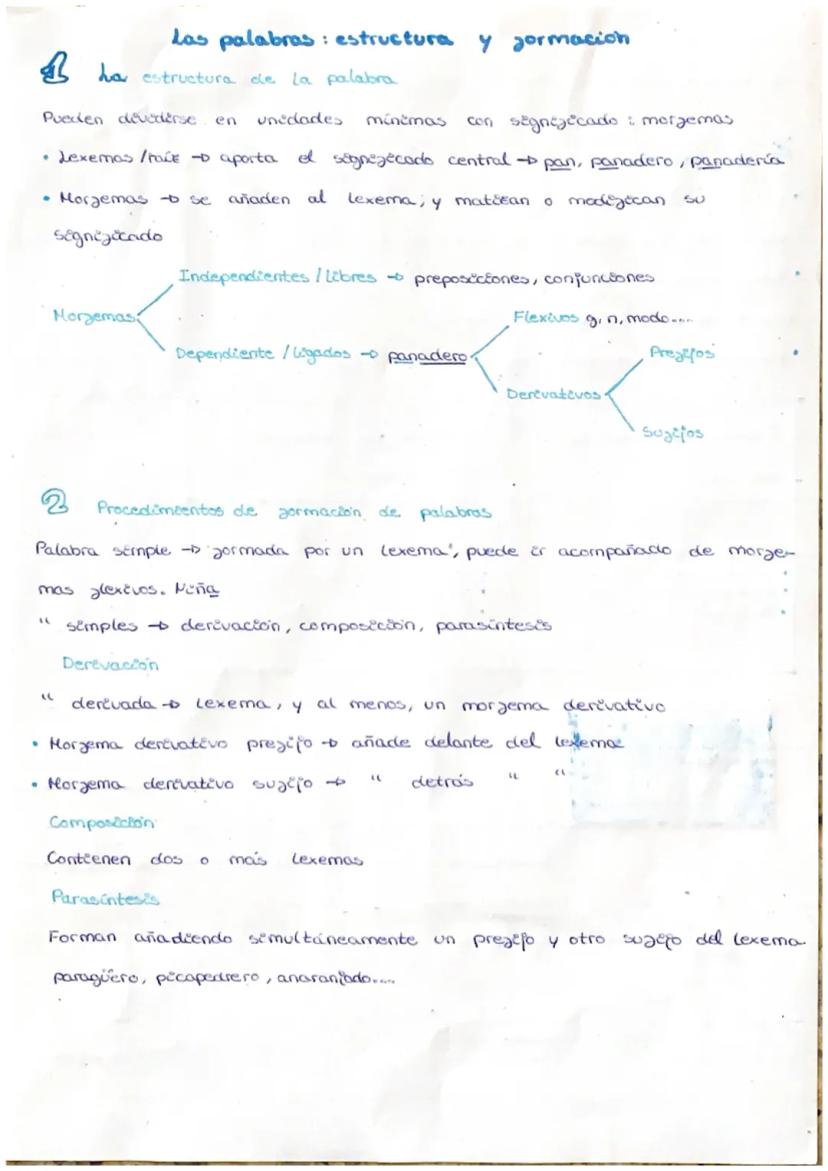 Las palabras: estructura y formación
1 La estructura de la palabra
Pueden dividirse en unidades mínimas con significado: morfemas
• Lexemas / raíz → aporta el significado central → pan, panadero, panadería
• Morfemas → se añaden al lexema, y matizan o modifican su
significado
Independientes / libres → preposiciones, conjunciones
Morfemas
Flexivos g, n, modo....
Dependiente / ligados → panadero
Prefijos
Derivativos
Sufijos
2 Procedimientos de formación de palabras
Palabra simple → formada por un lexema, puede ir acompañado de morfe-
mas flexivos. Niña
" simples → derivación, composición, parasíntesis
Derivación
" derivada → lexema, y al menos, un morfema derivativo
• Morfema derivativo prefijo → añade delante del lexema
• Morfema derivativo sufijo → " detrás " "
Composición
Contienen dos o más lexemas
Parasíntesis
Forman añadiendo simultáneamente un prefijo y otro sufijo del lexema.
paragüero, picapedrero, anaranjado....